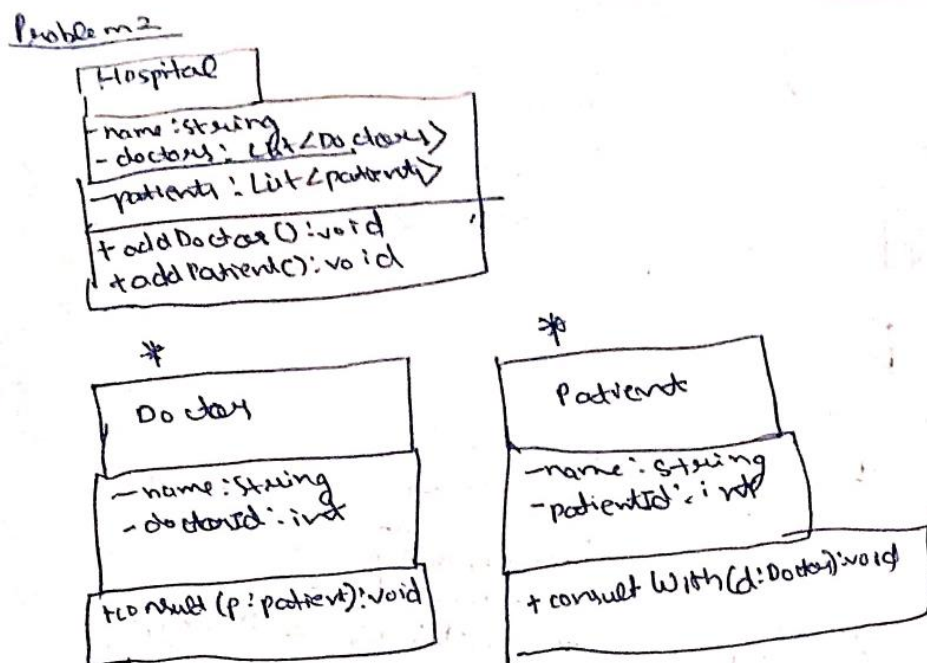 Problem 2
Hospital
-name: String
- doctors: List<Doctors>
-patients: List<patients>
+ addDoctor(): void
+ addPatient(): void
* *
Doctor
Patient
-name: String
- doctorId: int
-name: String
-patientId: int
+consult (p: patient): void
+ consult With(d: Doctor): void